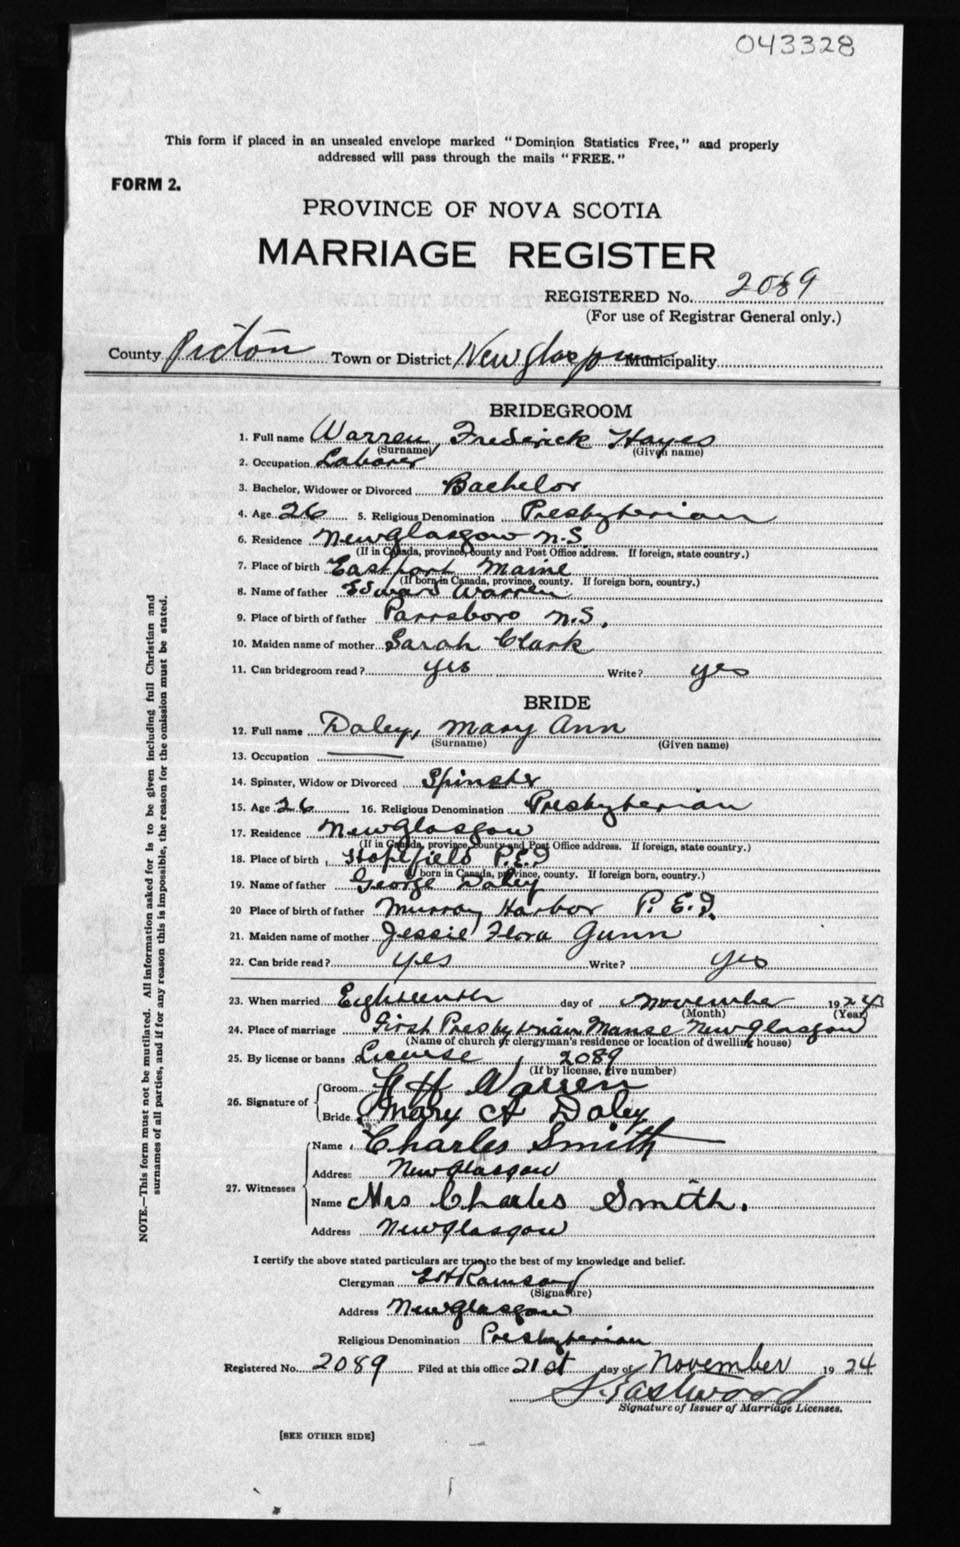 043328
This form if placed in an unsealed envelope marked "Dominion Statistics Free," and properly
addressed will pass through the mails "FREE."
FORM 2.
PROVINCE OF NOVA SCOTIA
MARRIAGE REGISTER
REGISTERED No. 2089
(For use of Registrar General only.)
County Picton Town or District New Glasgow Municipality
BRIDEGROOM
1. Full name Warren, Frederick Hayes
(Surname) (Given name)
2. Occupation Laborer
3. Bachelor, Widower or Divorced Bachelor
4. Age 26 5. Religious Denomination Presbyterian
6. Residence New Glasgow N.S
(If in Canada, province, county and Post Office address. If foreign, state country.)
7. Place of birth Eastport Maine
(If born in Canada, province, county. If foreign born, country.)
8. Name of father Edward Warren
9. Place of birth of father Parrsboro N.S.
10. Maiden name of mother Sarah Clark
11. Can bridegroom read? yes Write? yes
BRIDE
12. Full name Daley, Mary Ann
(Surname) (Given name)
13. Occupation
14. Spinster, Widow or Divorced Spinster
15. Age 26 16. Religious Denomination Presbyterian
17. Residence New Glasgow
(If in Canada, province, county and Post Office address. If foreign, state country.)
18. Place of birth P.E.I
(If born in Canada, province, county. If foreign born, country.)
19. Name of father George Daley
20 Place of birth of father Murray Harbor P.E.I.
21. Maiden name of mother Jessie Flora Gunn
22. Can bride read? yes Write? yes
23. When married Eighteenth day of November 1924
(Month) (Year)
24. Place of marriage First Presbyterian Manse New Glasgow
(Name of church or clergyman's residence or location of dwelling house)
25. By license or banns License, 2089
(If by license, give number)
26. Signature of
Groom F H Warren
Bride Mary A Daley
27. Witnesses
Name Charles Smith
Address New Glasgow
Name Mrs Charles Smith.
Address New Glasgow
I certify the above stated particulars are true to the best of my knowledge and belief.
Clergyman
(Signature)
Address New Glasgow
Religious Denomination Presbyterian
Registered No. 2089 Filed at this office 21st day of November 1924
Eastwood
Signature of Issuer of Marriage Licenses.
[SEE OTHER SIDE]
NOTE.—This form must not be mutilated. All information asked for is to be given including full Christian and
surnames of all parties, and if for any reason this is impossible, the reason for the omission must be stated.